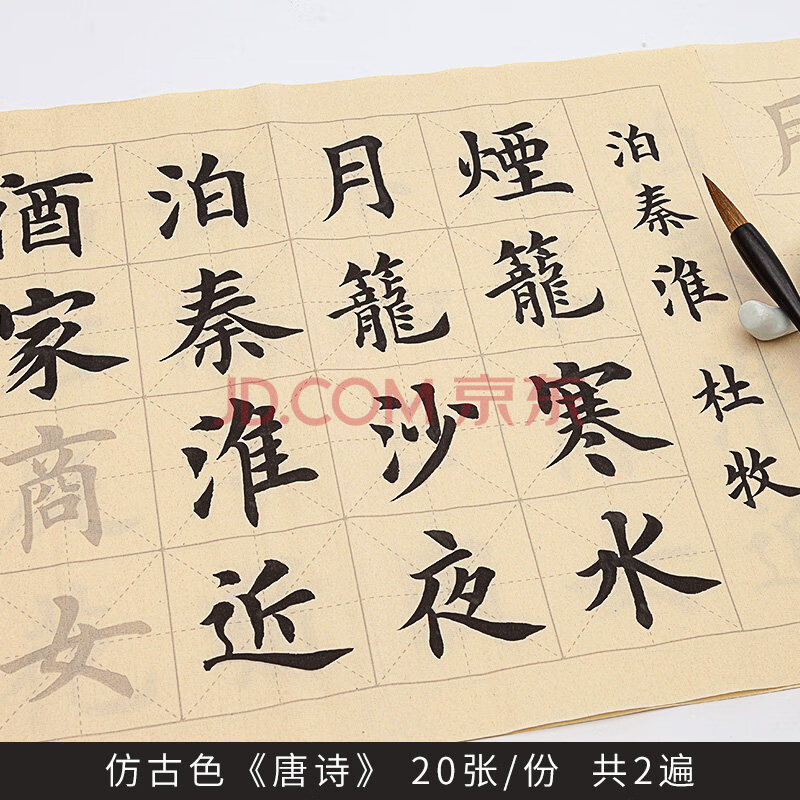 泊秦淮 杜牧
煙籠寒水
月籠沙夜
泊秦淮近
酒家商女
JD.COM 京东
仿古色《唐诗》 20张/份 共2遍